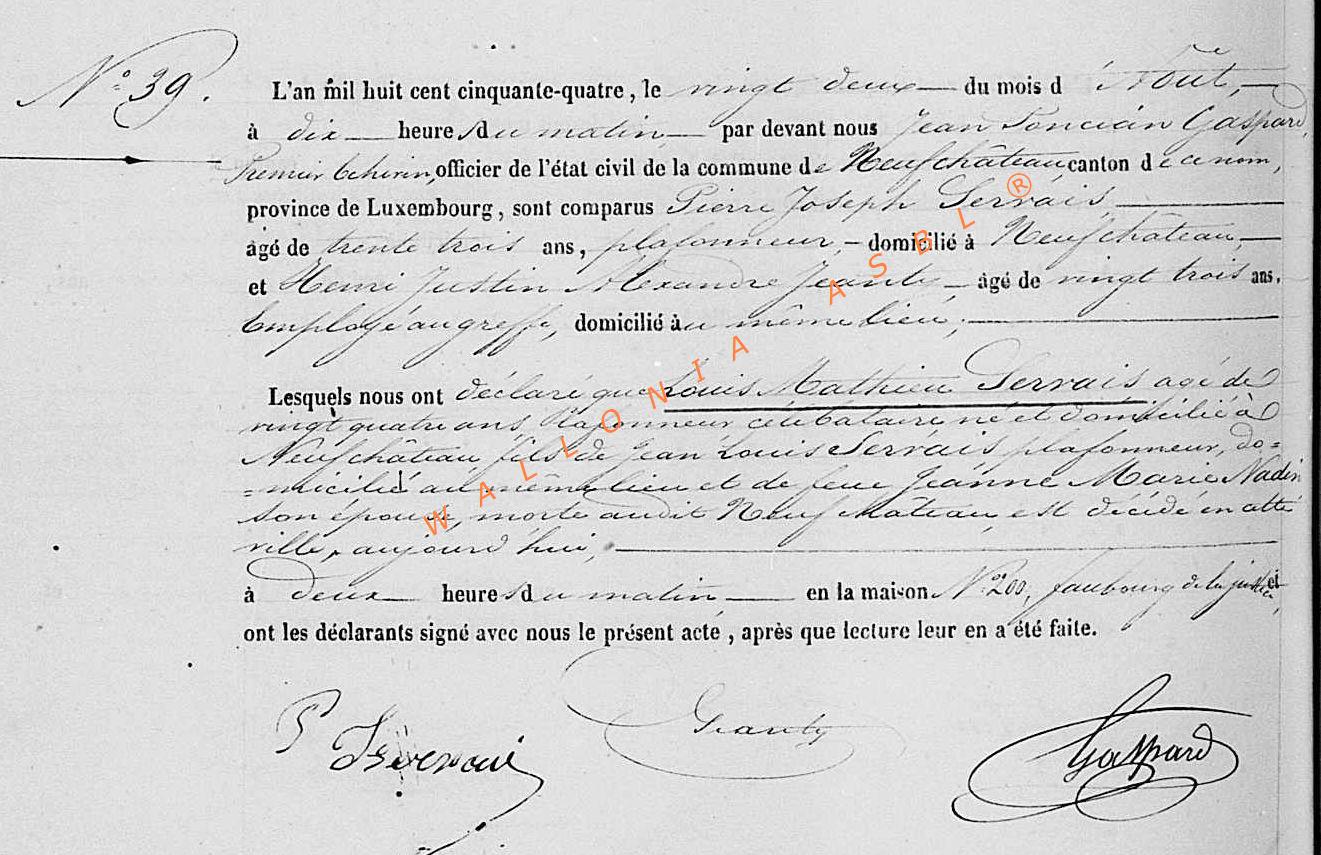 N° 39.
L'an mil huit cent cinquante-quatre, le vingt deux du mois d'Aout,
à dix heures du matin par devant nous Jean Poncian Gaspard,
Premier Echevin, officier de l'état civil de la commune de Neufchâteau, canton de ce nom,
province de Luxembourg, sont comparus Pierre Joseph Servais
âgé de trente trois ans, plafonneur, domicilié à Neufchâteau,
et Henri Justin Alexandre Jeanty âgé de vingt trois ans.
Employé au greffe, domicilié au même lieu,
Lesquels nous ont déclaré que Louis Mathieu Servais agé de
vingt quatre ans, Plafonneur célibataire né et domicilié à
Neufchâteau fils de Jean Louis Servais plafonneur, do=
=micilié au même lieu et de feue Jeanne Marie Nadin
son épouse, morte audit Neufchâteau, est décédé en cette
ville, aujourd'hui,
à deux heures du matin en la maison N° 200, faubourg de la justice, et
ont les déclarants signé avec nous le présent acte, après que lecture leur en a été faite.
P Servais Jeanty Gaspard
WALLONIA ASBL ®